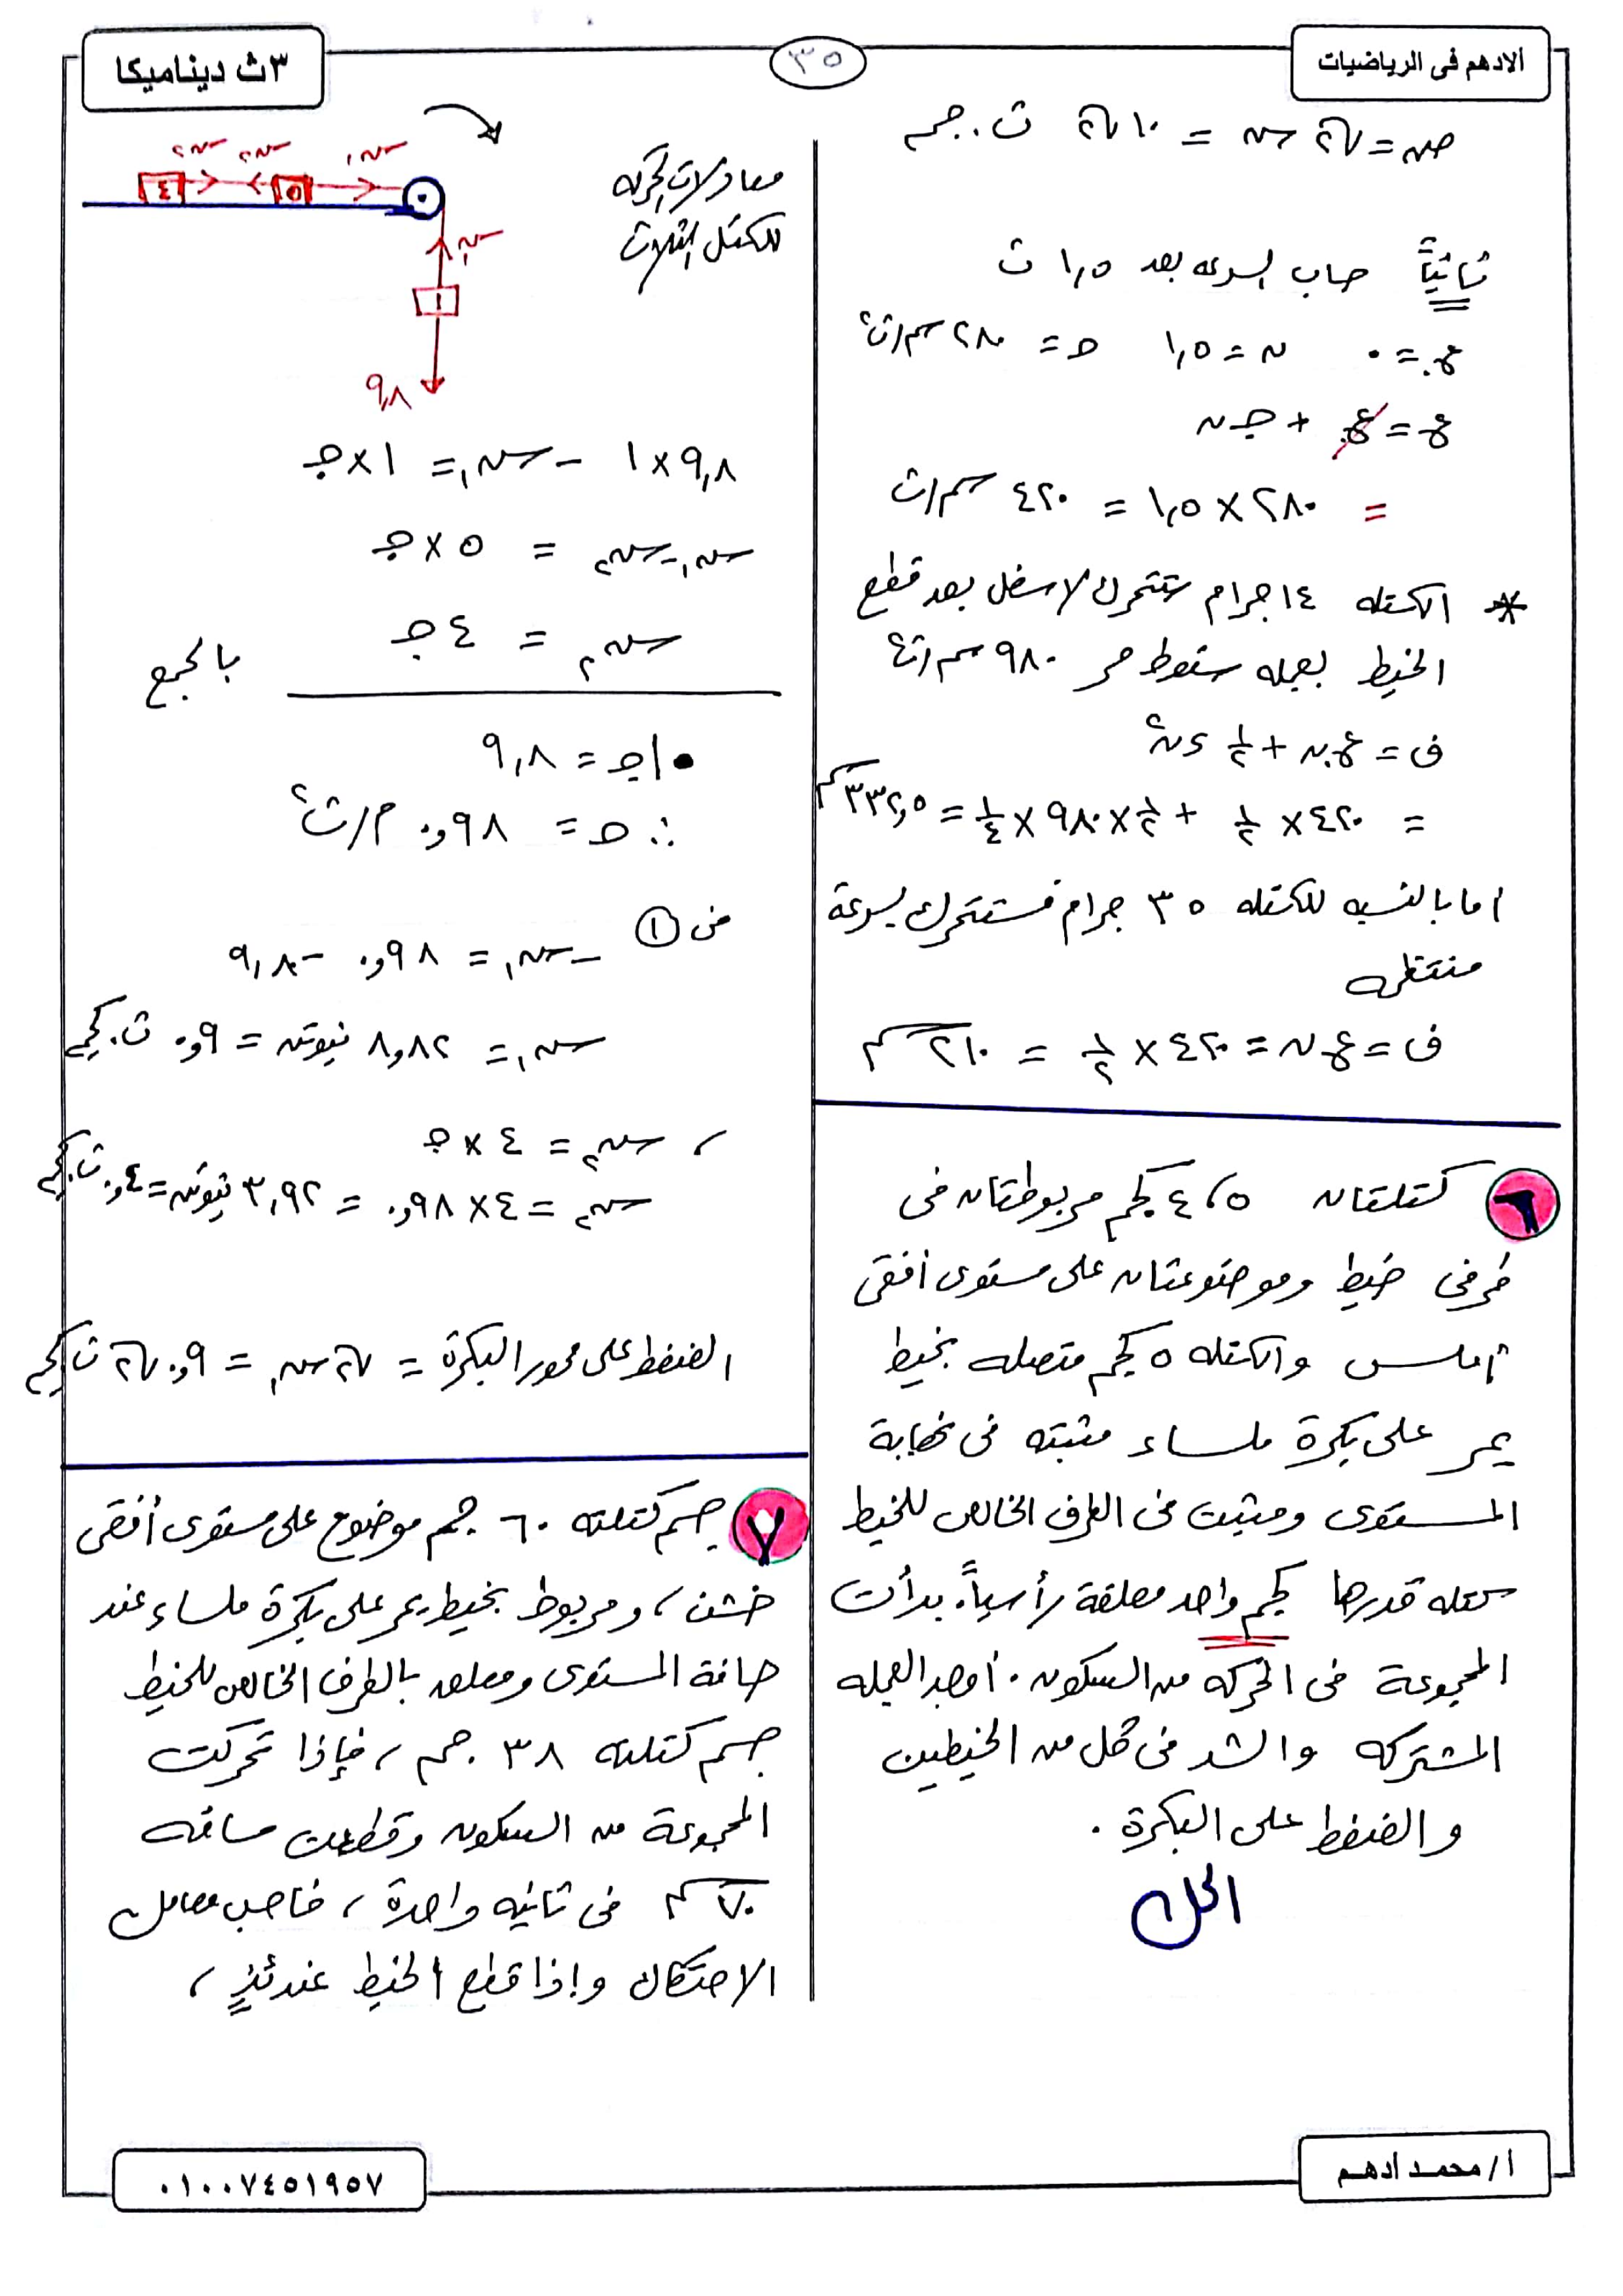 الادهم فى الرياضيات
٣٥
٣ث ديناميكا
ض = √٢ ش = ١٠ √٢ ث.جم
ثانياً حساب السرعه بعد ١,٥ ث
ع. = ٠ ن = ١,٥ حـ = ٢٨٠ سم/ث٢
ع = ع. + جـ ن
= ٢٨٠ × ١,٥ = ٤٢٠ سم/ث
* الكتله ١٤ جرام ستتحرك لاسفل بعد قطع
الخيط بعجله سقوط حر ٩٨٠ سم/ث٢
ف = ع. ن + ١/٢ ء ن٢
= ٤٢٠ × ١/٢ + ١/٢ × ٩٨٠ × ١/٤ = ٣٣٢,٥ سم
اما بالنسبه للكتله ٣٥ جرام فستتحرك بسرعة
منتظمه
ف = ع ن = ٤٢٠ × ١/٢ = ٢١٠ سم
٦ كتلتان ٥ ، ٤ كجم مربوطتان فى
طرفى خيط وموضوعتان على مستوى افقى
أملس والكتله ٥ كجم متصله بخيط
يمر على بكرة ملساء مثبته فى نهاية
المستوى ومثبت فى الطرف الخالص للخيط
كتله قدرها كجم واحد معلقة رأسياً. بدأت
المجموعة فى الحركه من السكون. أوجد العجله
المشتركه والشد فى كل من الخيطين
والضغط على البكرة.
الحل
معادلات الحركه
للكتل الثلاث
ش٢ ش٢ ش١
٤ ٥
ش١
١
٩,٨
٩,٨ × ١ - ش١ = ١ × جـ
ش١ - ش٢ = ٥ × جـ
ش٢ = ٤ جـ
بالجمع
١٠ جـ = ٩,٨
∴ حـ = ٩٨,٠ م/ث٢
من ① - ش١ = ٩٨,٠ - ٩,٨
ش١ = ٨,٨٢ نيوتن = ٩,٠ ث.كجم
، ش٢ = ٤ × جـ
ش٢ = ٤ × ٩٨,٠ = ٣,٩٢ نيوتن = ٤,٠ ث.كجم
الضغط على محور البكرة = √٢ ش١ = ٩,٠ √٢ ث كجم
٧ جسم كتلته ٦٠ جم موضوع على مستوى أفقى
خشن ، ومربوط بخيط يمر على بكرة ملساء عند
حافة المستوى ومعلق بالطرف الخالص للخيط
جسم كتلته ٣٨ جم ، فإذا تحركت
المجموعة من السكون وقطعت مسافه
٧٠ سم فى ثانيه واحدة ، فاحسب معامل
الاحتكاك وإذا قطع الخيط عندئذٍ ،
أ / محمـد أدهـم
٠١٠٠٧٤٥١٩٥٧